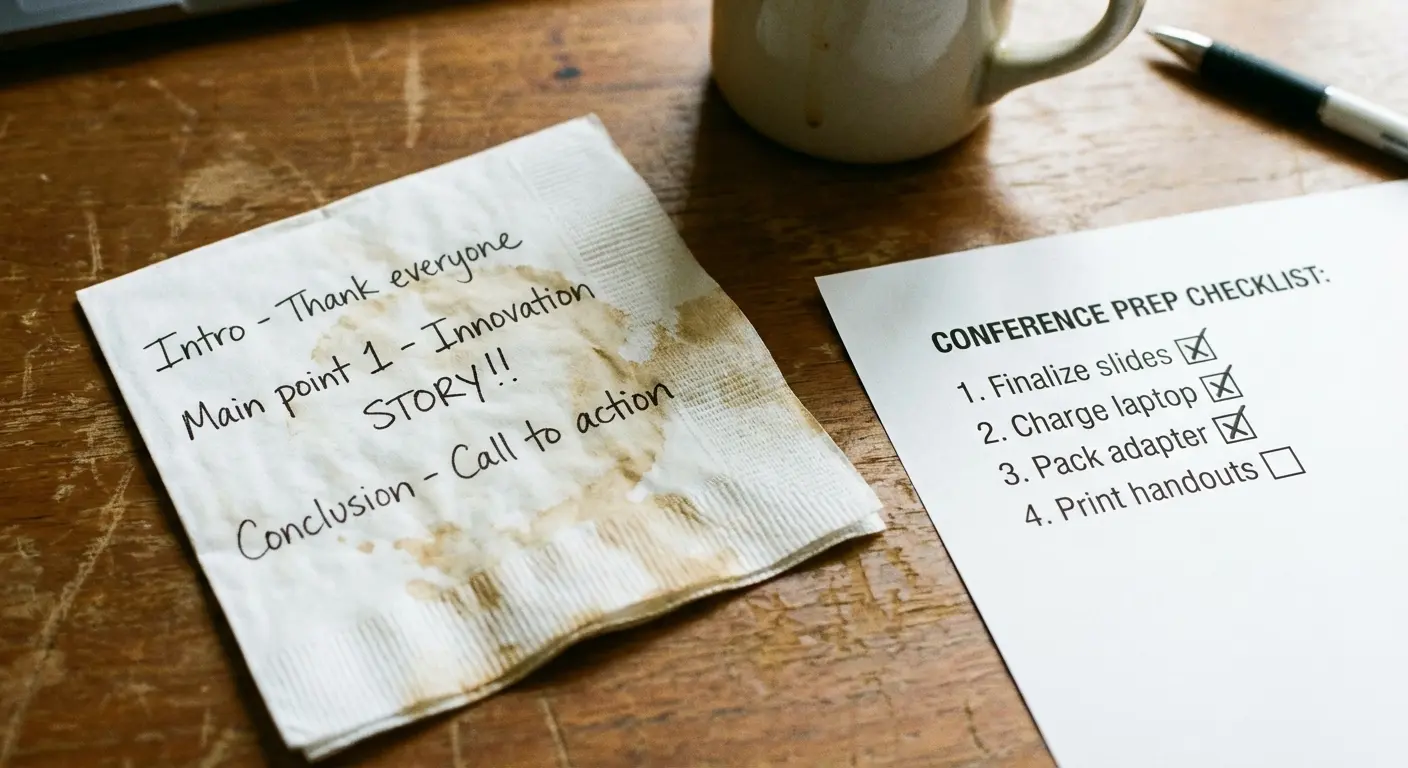 Intro - Thank everyone
Main point 1 - Innovation
STORY!!
Conclusion - Call to action
CONFERENCE PREP CHECKLIST:
1. Finalize slides ☒
2. Charge laptop ☒
3. Pack adapter ☒
4. Print handouts ☐